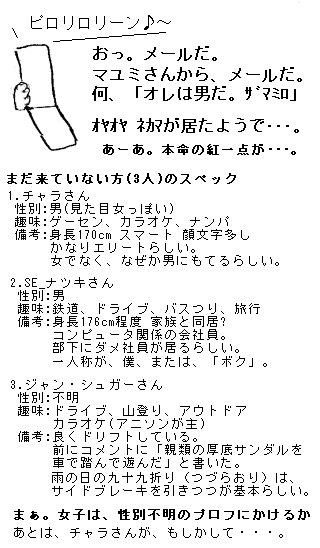 ピロリロリーン♪〜
おっ。メールだ。
マユミさんから、メールだ。
何、「オレは男だ。ｻﾞﾏﾐﾛ」
ｵﾔｵﾔ ﾈｶﾏが居たようで･･･。
あーあ。本命の紅一点が･･･。
まだ来ていない方(3人)のスペック
1.チャラさん
性別:男(見た目女っぽい)
趣味:ゲーセン、カラオケ、ナンパ
備考:身長170cm スマート 顔文字多し
かなりエリートらしい。
女でなく、なぜか男にもてるらしい。
2.SE_ナツキさん
性別:男
趣味:鉄道、ドライブ、バスつり、旅行
備考:身長176cm程度 家族と同居?
コンピュータ関係の会社員。
部下にダメ社員が居るらしい。
一人称が、僕、または、「ボク」。
3.ジャン・シュガーさん
性別:不明
趣味:ドライブ、山登り、アウトドア
カラオケ(アニソンが主)
備考:良くドリフトしている。
前にコメントに「親類の厚底サンダルを
車で踏んで遊んだ」と書いた。
雨の日の九十九折り(つづらおり)は、
サイドブレーキを引きつつが基本らしい。
まぁ。女子は、性別不明のプロフにかけるか
あとは、チャラさんが、もしかして・・・。